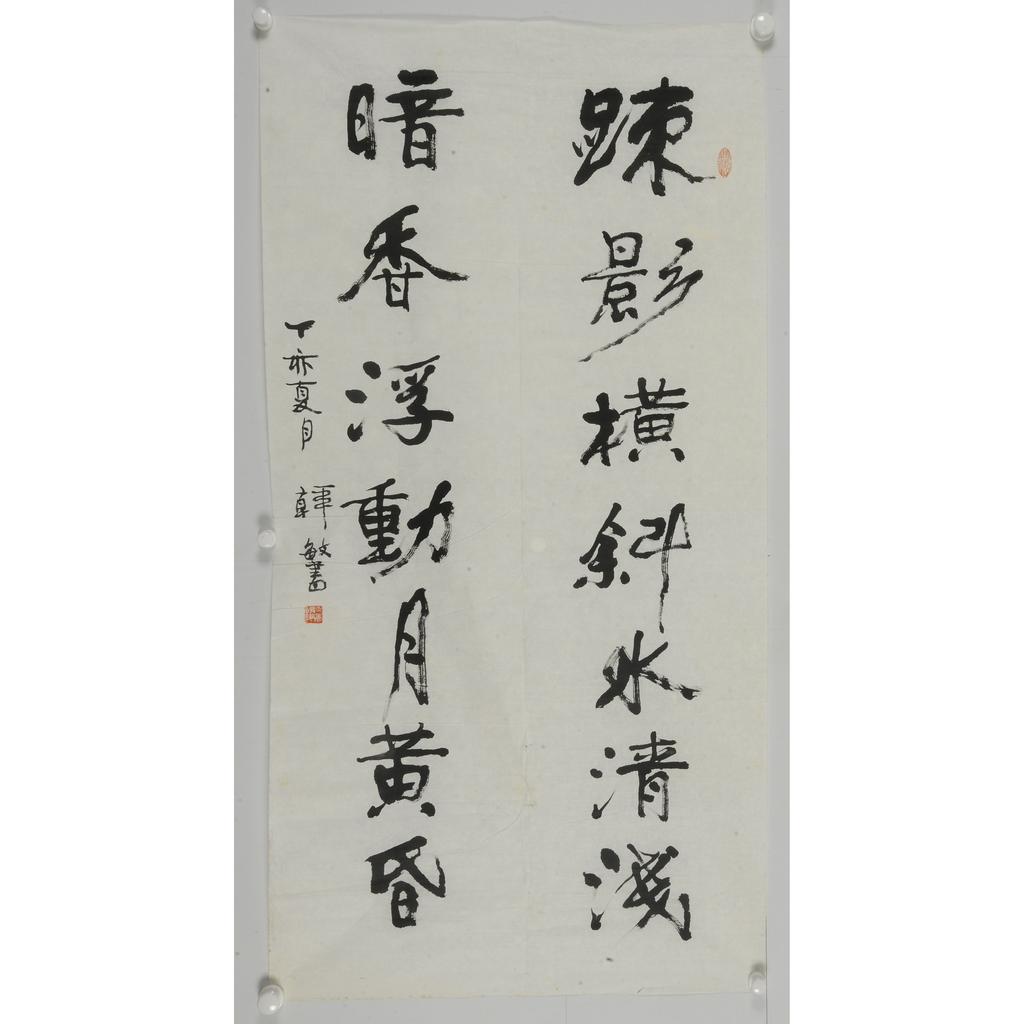 疎影橫斜水清淺
暗香浮動月黃昏
丁亥夏月 韓敏書